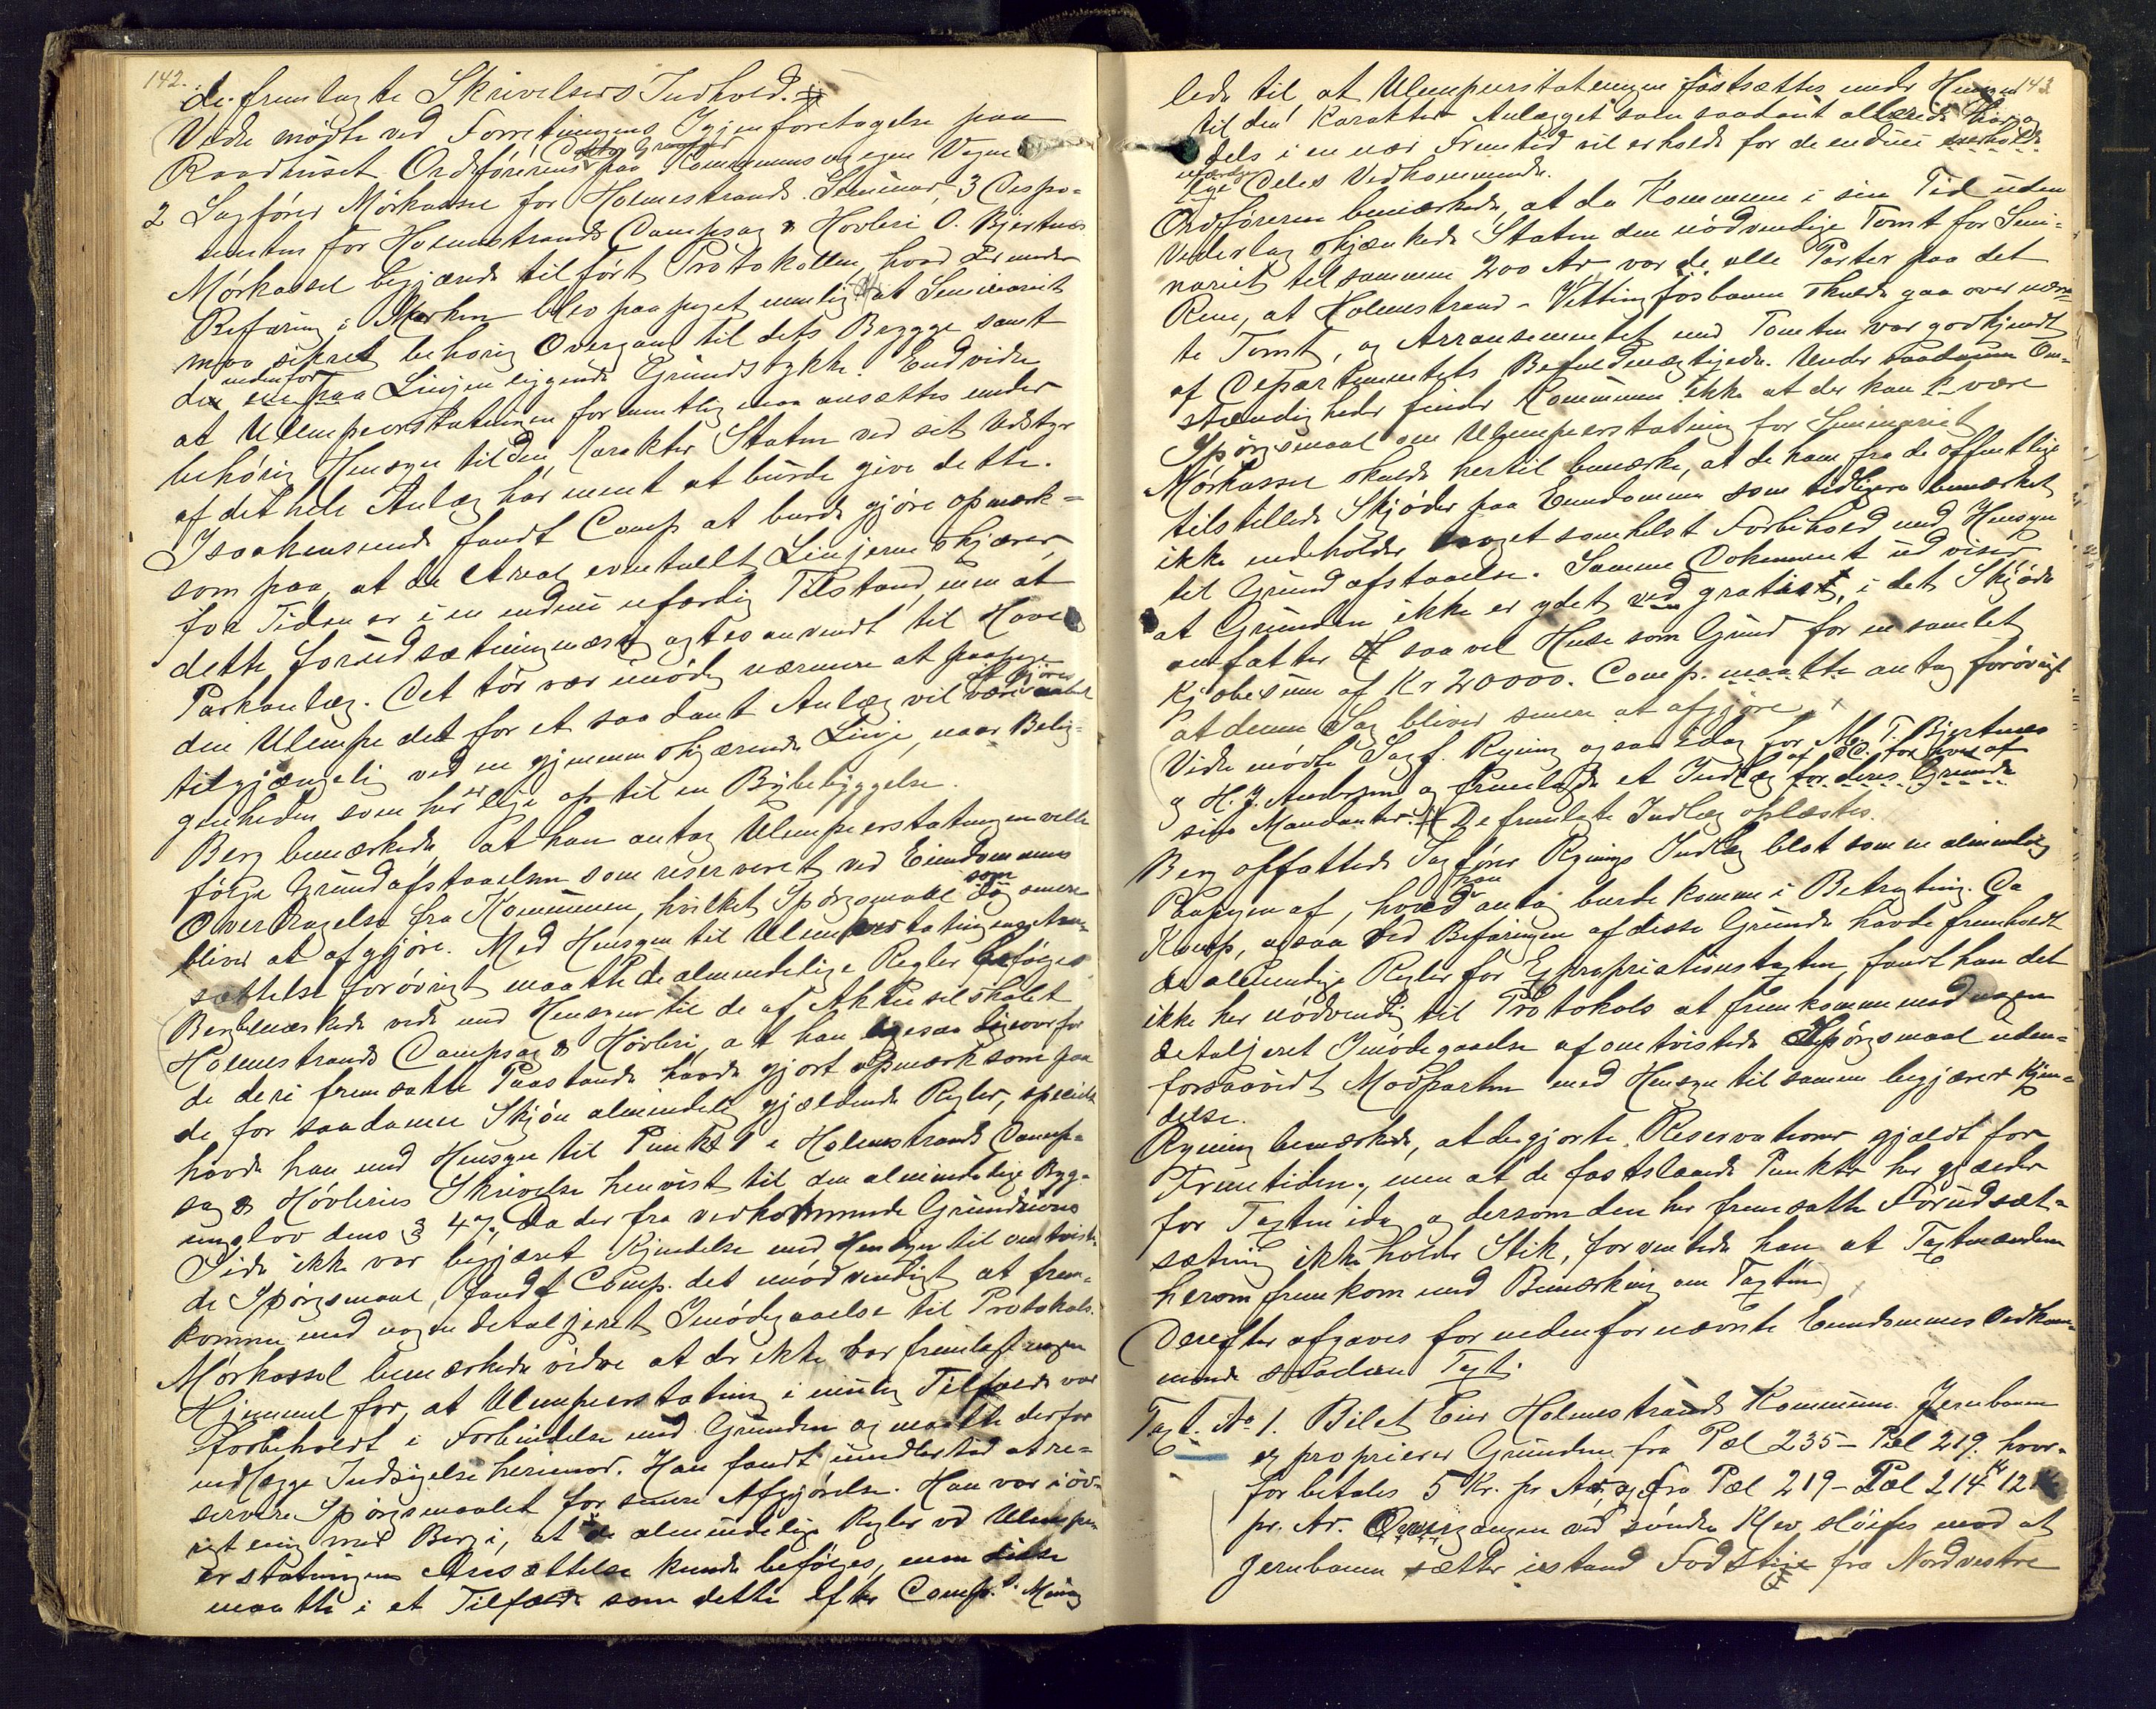 142.
de fremlagte Skrivelsers Indhold.
Videre mødte ved Forretningens Igjenforetagelse paa
Raadhuset Ordføreren paa Kommunens og egne Vegne
2 Sagfører Mørkassel for Holmestrands Seminar, 3 Dispo-
nenten for Holmestrands Dampsag & Høvleri O. Bjertnæs
Mørkassel begjærede tilført Protokollen, hvad der under
Befaring i Marken blev paapeget nemlig at Seminariet
maa sikret behørig Overgang til dets Brygge samt
den nedenfor Linjen liggende Grundstykke. Endvidere
at Ulempeerstatningen formentlig maa ansættes under
behørig Hensyn til den Karakter Staten ved sit Udstyr
af det hele Anlæg har ment at burde give dette.
Isaahenseende fandt Comp at burde gjøre opmærk-
som paa, at de Areal eventuellt Linjerne skjærer,
for Tiden er i en endnu ufærdig Tilstand, men at
dette forudsætningsmæssig agtes anvendt til Have
Parkanlæg. Det tør være unødig nærmere at paapege
den Ulempe det for et saadant Anlæg vil
tilgjængelig ved en gjennemskjærende Linje, naar Belig-
genheden som her er lige op til en Bybebyggelse.
Berg bemærkede, at han antog Ulempeerstatningen vilde
følge Grundafstaaelsen som reserveret ved Eiendommens
Overdragelse fra Kommunen, hvilket Spørgsmaal som senere
bliver at afgjøre. Med Hensyn til Ulempeerstatningens An-
sættelse forøvrigt maatte de almindelige Regler befølges.
Berg bemærkede videre med Hensyn til de af Aktieselskabet
Holmestrands Dampsag & Høvleri, at han ligesaa ligeoverfor
de deri fremsatte Paastande havde gjort opmærksom paa
de for saadanne Skjøn almindelig gjældende Regler, specielt
havde han med Hensyn til Punkt 1 i Holmestrands Damp-
sag & Høvleries Skrivelse henvist til den almindelige Byg-
ningslov dens § 47. Da der fra vedkommende Grundeiers
Side ikke var begjæret Kjendelse med Hensyn til omtviste-
de Spørgsmaal, fandt Comp. det unødvendigt at frem-
komme med nogen detaljeret Imødegaaelse til Protokols.
Mørkassel bemærkede videre at der ikke var fremlagt nogen
Hjemmel for, at Ulempeerstatning i nærværende Tilfælde var
forbeholdt i Forbindelse med Grunden og maatte derfor
nedlægge Indsigelse herimod. Han fandt imidlertid at re-
servere Spørgsmaalet for senere Afgjørelse. Han var i øv-
rigt enig med Berg i, at de almindelige Regler ved Ulempe-
erstatningens Ansættelse kunde befølges, men disse
maatte i et Tilfælde som dette efter Comp.s Mening
143
lede til at Ulempeerstatningen fastsættes under Hensyn
til den Karakter Anlægget som saadant allerede har og
dels i en nær Fremtid vil erholde for de endnu
ufærdige Deles Vedkommende.
Ordføreren bemærkede, at da Kommunen i sin Tid uden
Vederlag skjænkede Staten den nødvendige Tomt for Semi-
nariet tilsammen 200 Ar var de alle Parter paa det
Rene, at Holmestrand - Vittingfosbanen skulde gaa over nævn-
te Tomt, og Arrangementet med Tomten var godkjendt
af Departementets Befuldmægtigede. Under saadanne Om-
stændigheder finder Kommunen ikke at der kan være
Spørgsmaal om Ulempeerstatning for Seminariet
Mørkassel skulde hertil bemærke, at de ham fra de offentlige
tilstillede Skjøder paa Eiendommen som tidligere bemærket
ikke indeholder noget somhelst Forbehold med Hensyn
til Grundafstaaelse. Samme Dokument udviser
at Grunden ikke er ydet gratis, i det Skjøde
omfatter saavel Huse som Grund for en samlet
Kjøbesum af Kr 20000. Comp. maatte antage forøvrigt
at denne Sag bliver senere at afgjøre.
Videre mødte Sagf. Ryning ogsaa idag for M. T. Bjertnæs
og H. J. Andersen og fremlagde et Indlæg
sine Mandanter. De fremlagte Indlæg oplæstes.
Berg opfattede Sagfører Rynings Indlæg blot som en almindelig
Paapegen af, hvad han antog burde komme i Betragtning. Da
Komp, ogsaa ved Befaringen af disse Grunde havde fremholdt
de almindelige Regler for Expropriationstaxten, fandt han det
ikke her nødvendig til Protokols at fremkomme med nogen
detaljeret Imødegaaelse af omtvistede Spørgsmaal uden-
forsaavidt Modparten med Hensyn til samme begjærer Kjen-
delse.
Ryning bemærkede, at de gjorte Reservationer gjældt for
Fremtiden, men at de fastslaaede Punkter her gjælder
for Taxten idag og dersom den her fremsatte Forudsæt-
sætning ikke holder Stik, forventede han at Taxtmændene
herom fremkom med Bemærkning om Taxten
Derefter afgaves for nedenfor nævnte Eiendommes Vedkom-
mende saadan Taxt.
Taxt. No 1. Bilet Eier Holmestrands Kommune. Jernbanen
exproprierer Grunden fra Pæl 235 - Pæl 219. hvor-
for betales 5 Kr. pr Ar, og fra Pæl 219 - Pæl 214 12 Kr
pr. Ar. Overgangen ved søndre Klev sløifes mod at
Jernbanen sætter istand Fodstige fra Nordvestre